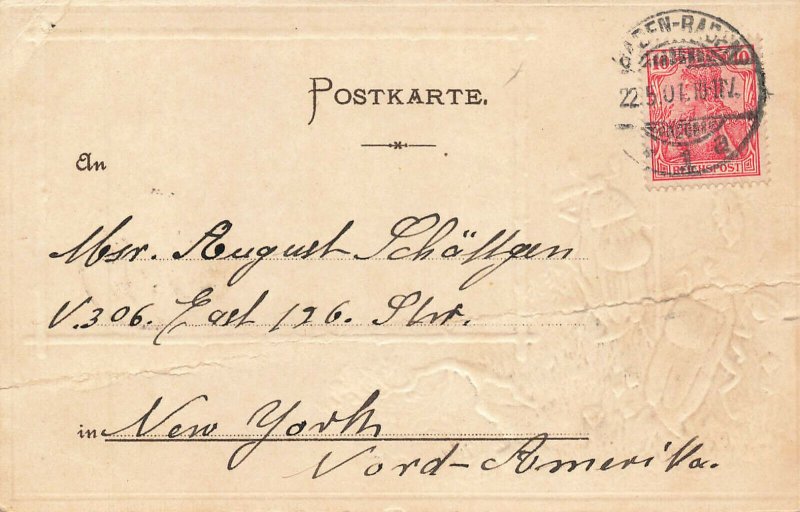 POSTKARTE.
BADEN-BADEN
22.5.01.10-11V.
1 a
10
REICHSPOST
An
Msr. August Schöffgen
V. 306. East 126. Str.
in New York
Nord-Amerika.